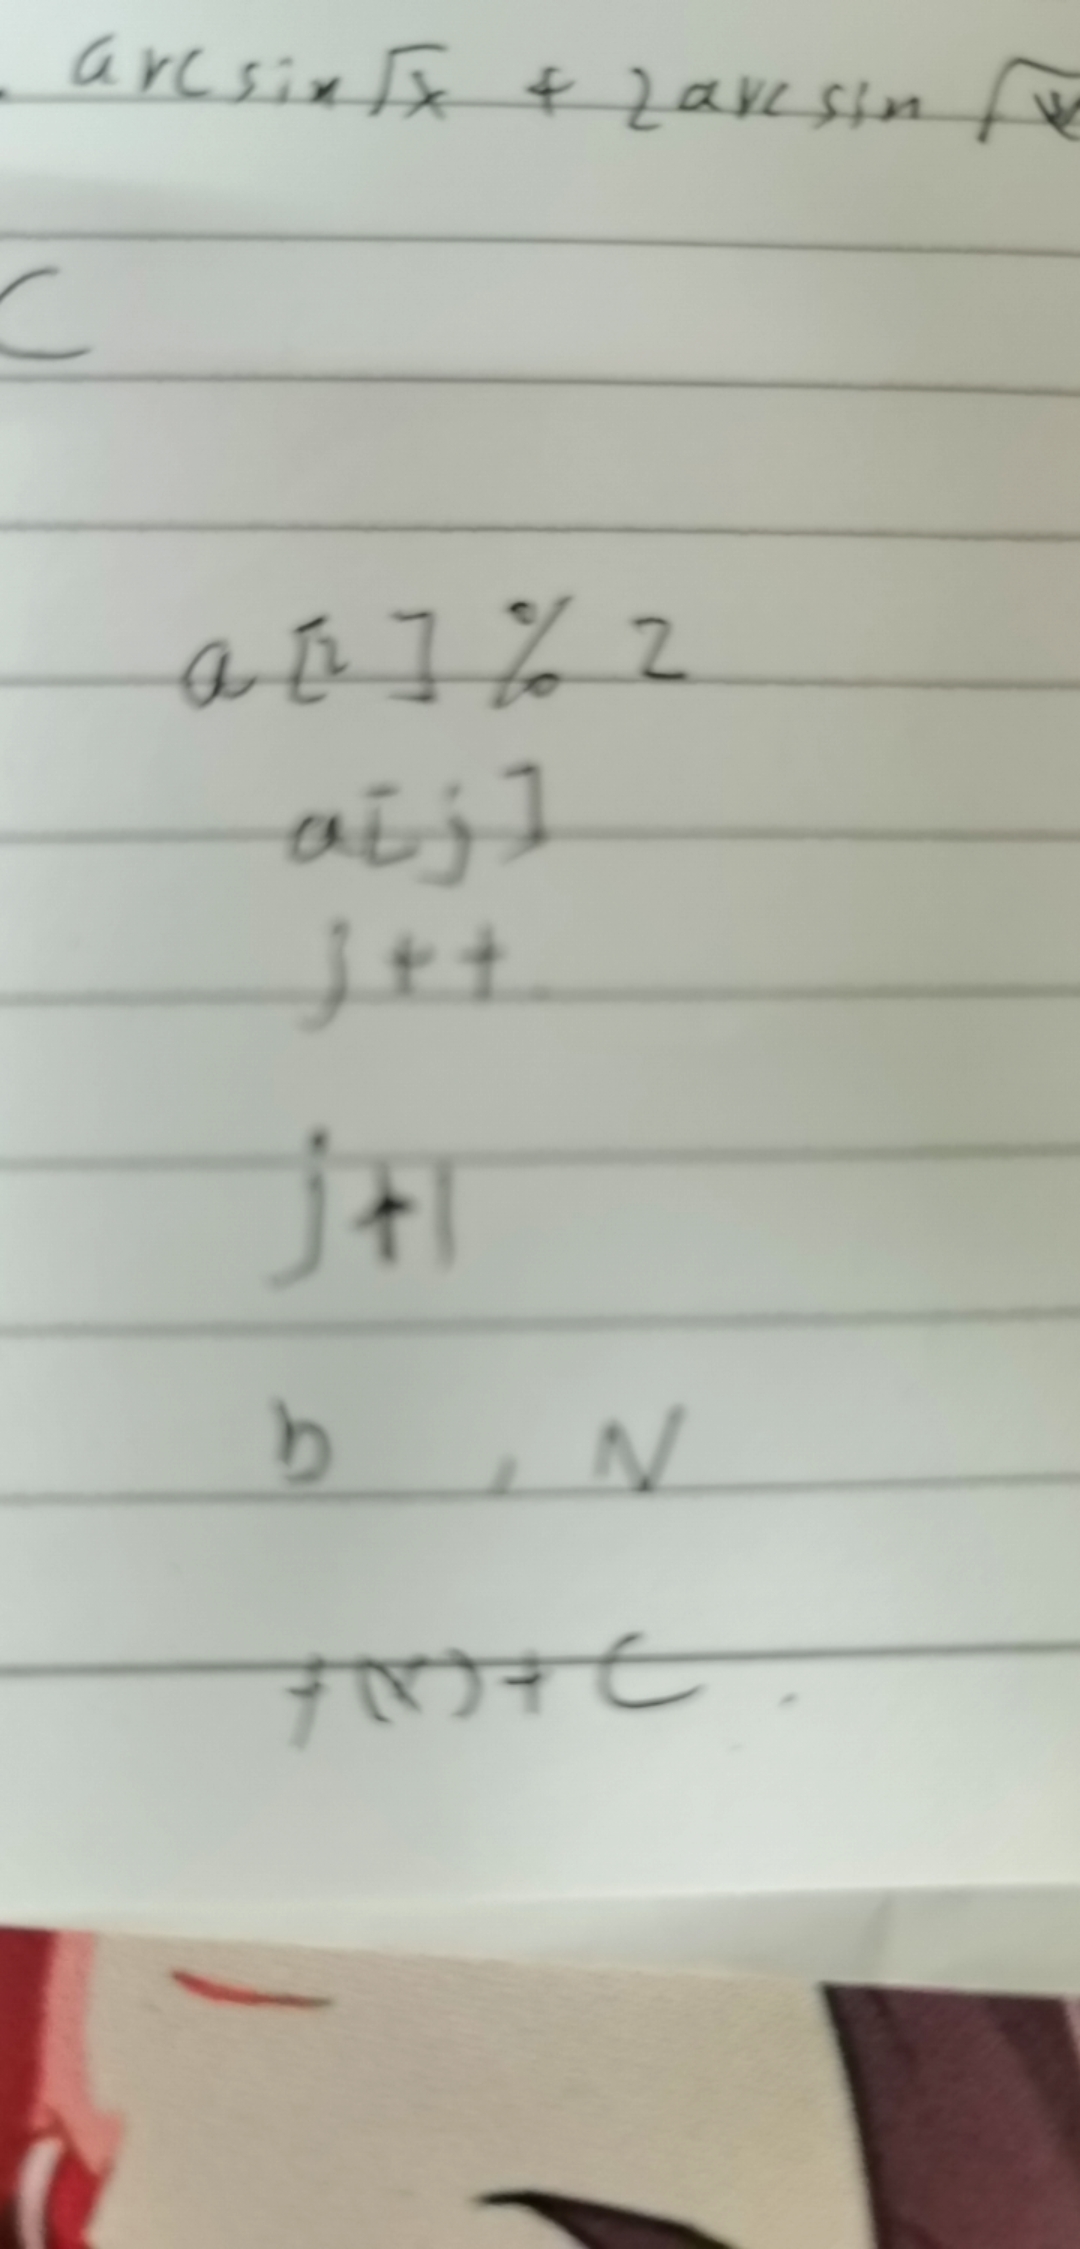 . arcsin√x + 2arcsin √x
C
a[i]%2
a[j]
j++
j+1
b , N
f(x)+C.